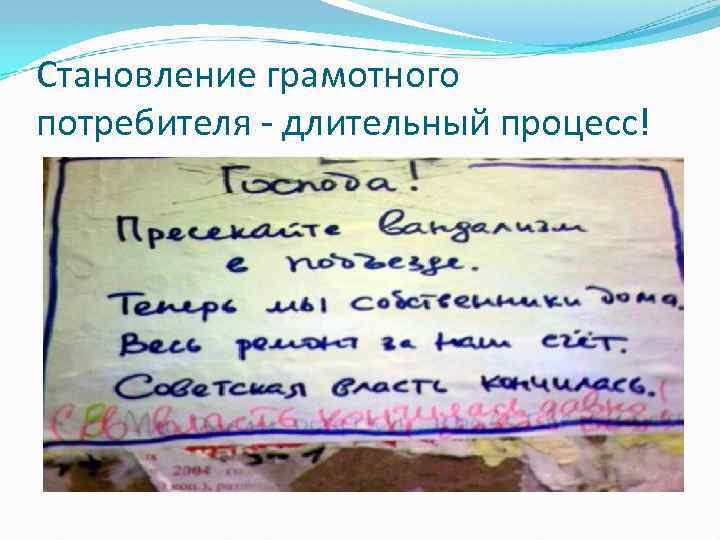 Становление грамотного
потребителя - длительный процесс!
Господа!
Пресекайте вандализм
в подъезде.
Теперь мы собственники дома.
Весь ремонт за наш счёт.
Советская власть кончилась.
власть кончилась давно
2004